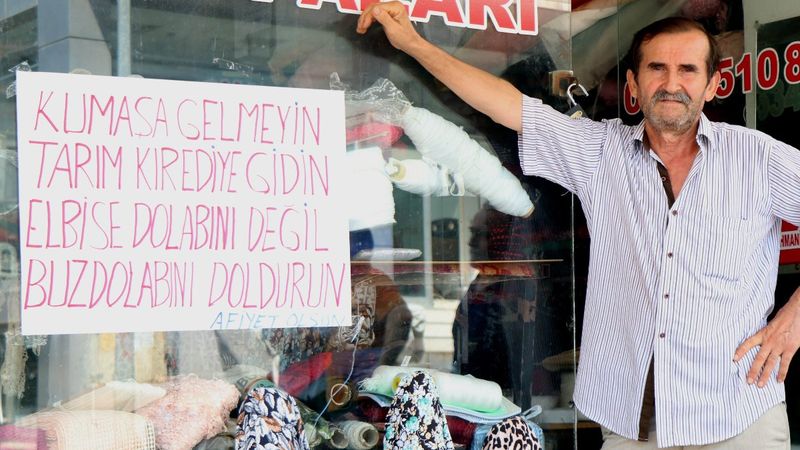 PAZARI
KUMAŞA GELMEYİN
TARIM KIREDİYE GİDİN
ELBİSE DOLABINI DEĞİL
BUZDOLABINI DOLDURUN
AFİYET OLSUN
510 8